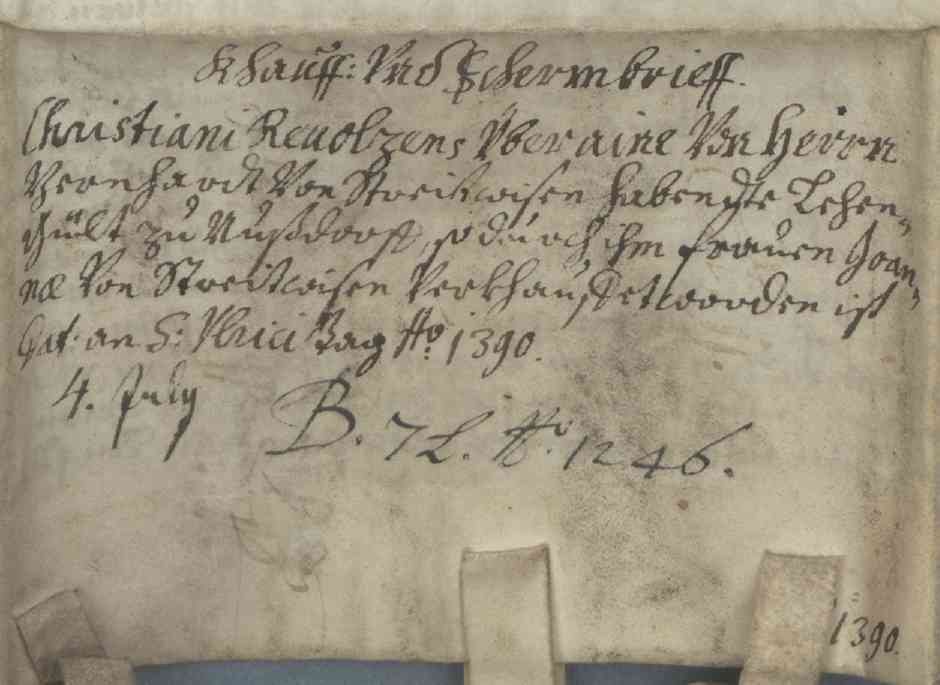 Khauff: Vnd Schermbrieff.
Christiani Reuolzens Vber aine Von Herrn
Bernhardt Von Streitwisen habendte Lehen„
gült zu Nußdorff, so durch ihm frauen Joan„
næ Von Streitwisen Verkhauffet worden ist
Dat: an S: Vlrici Tag Ao. 1390.
4. July
B. 72. No. 1246.
1390.